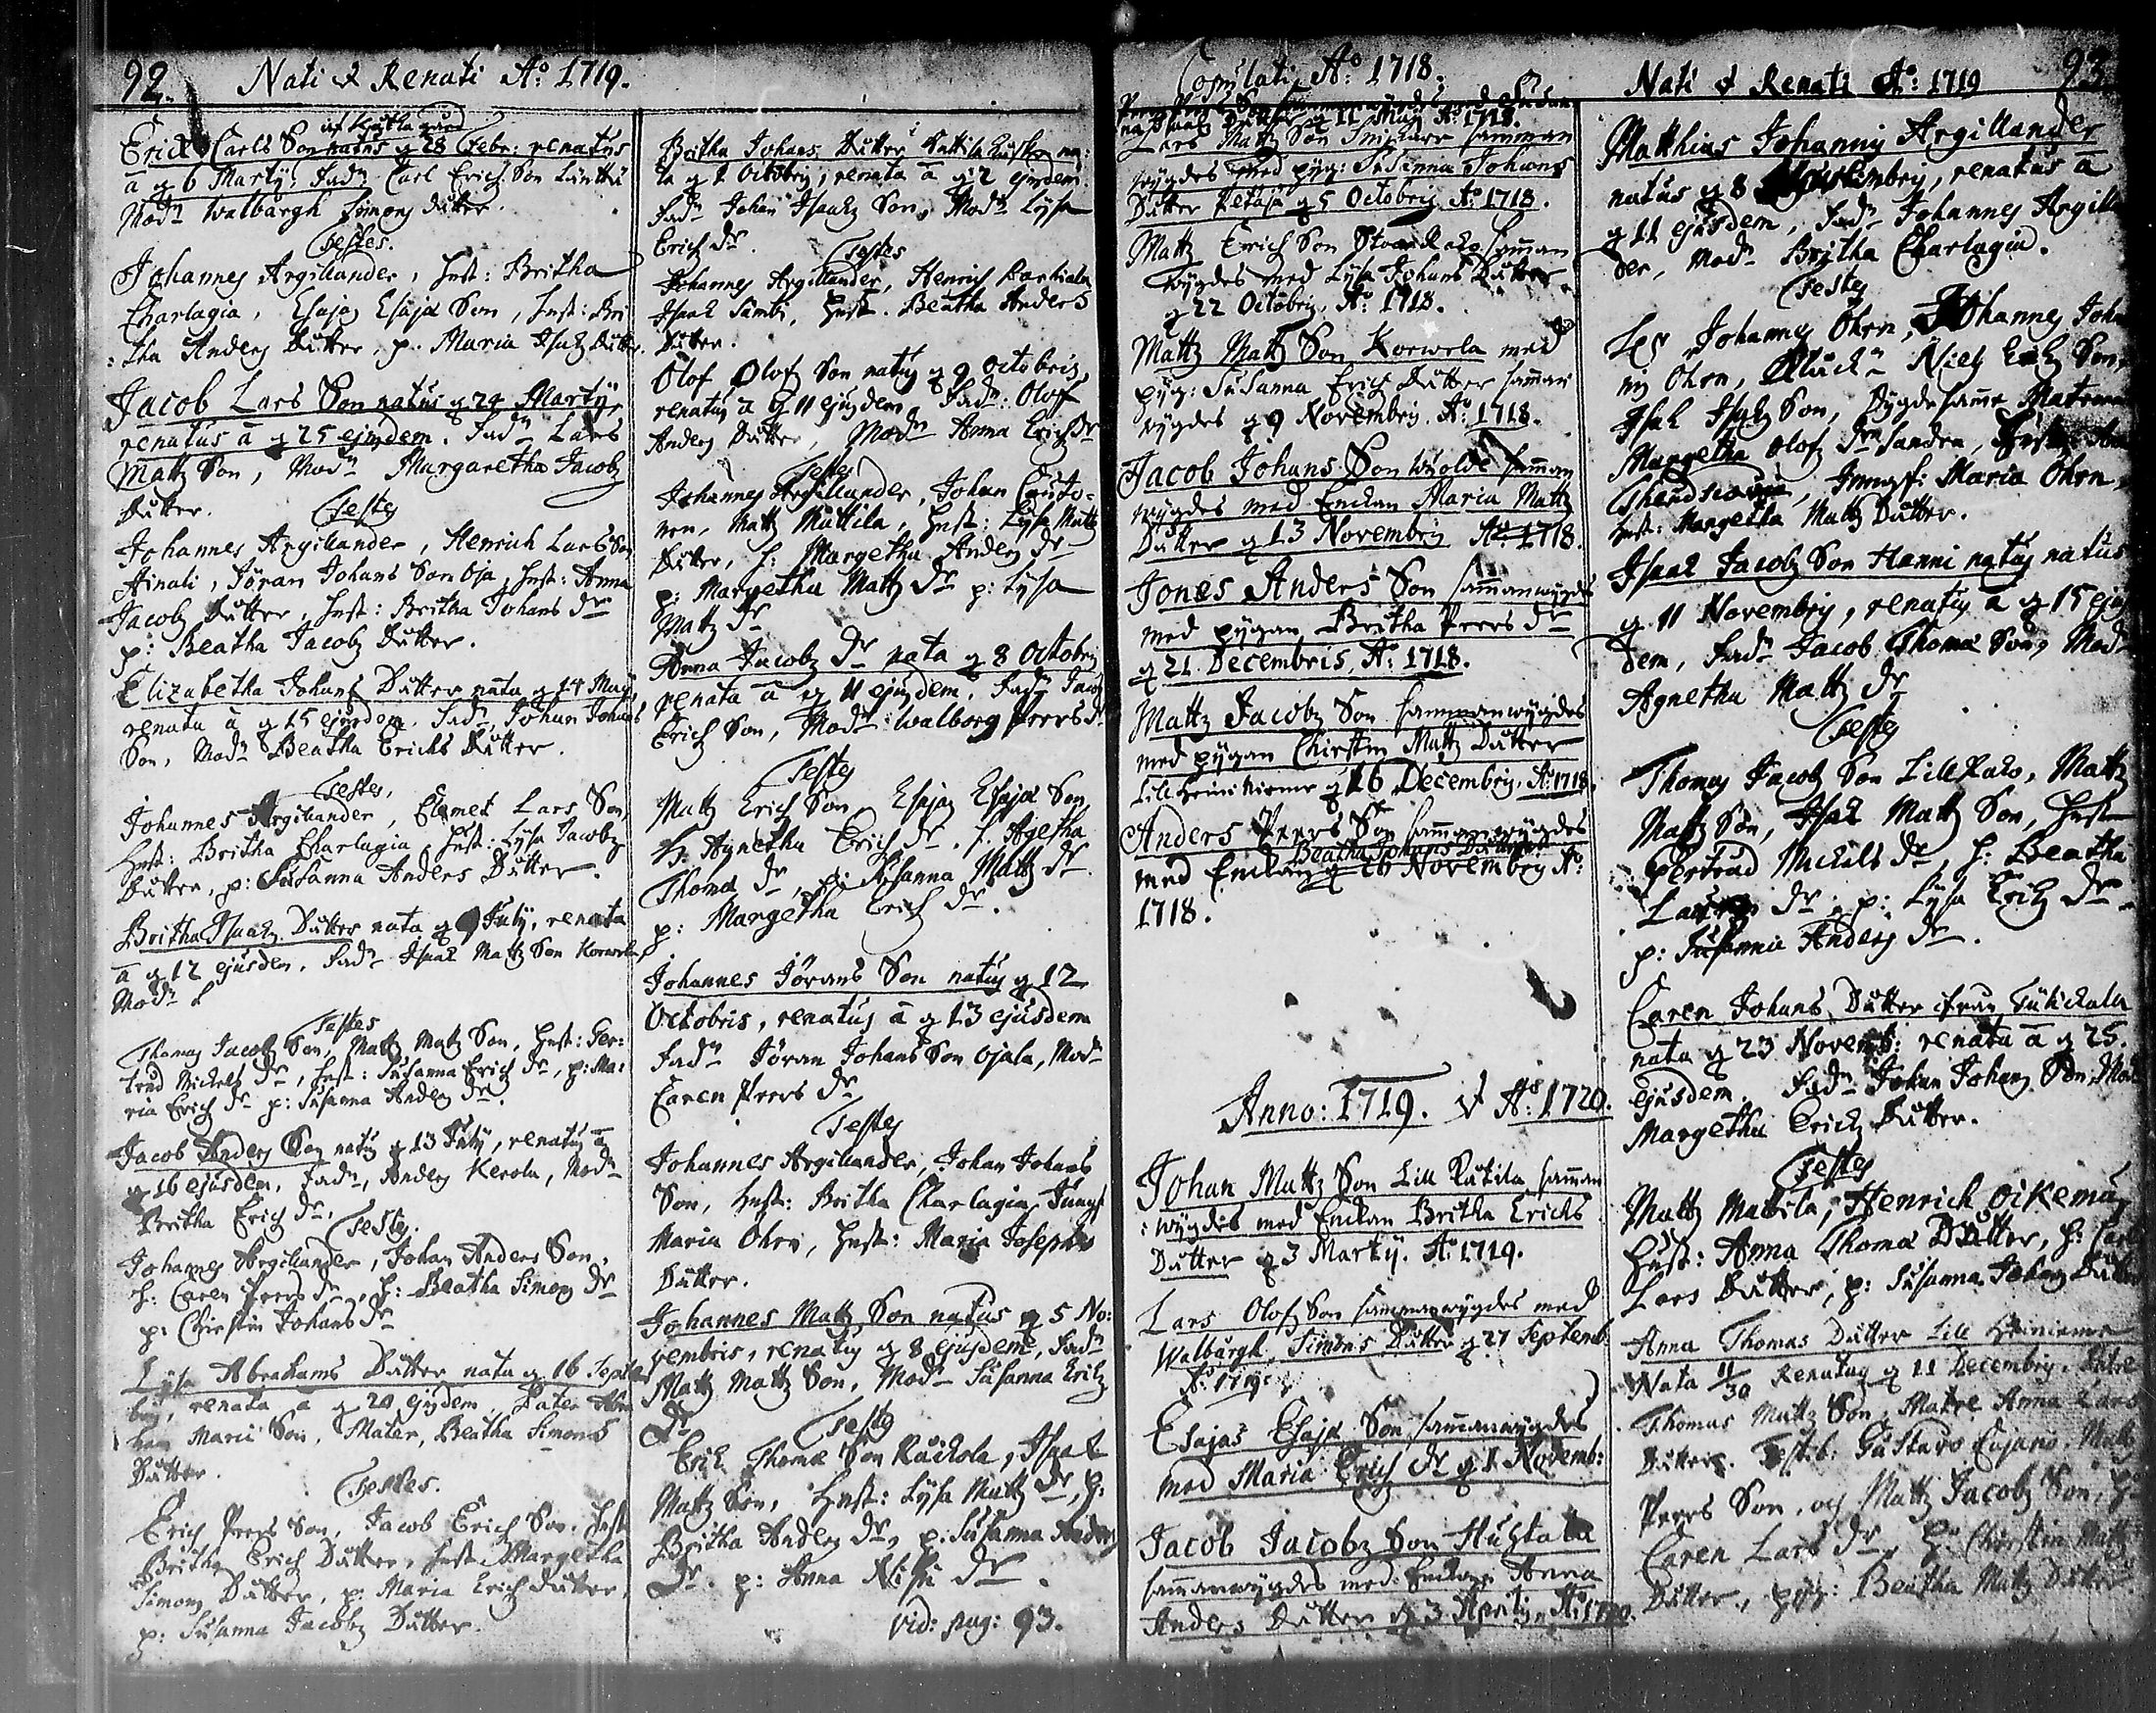 92. Nati & Renati Aº 1719.
Erich Carls Son natus q 28 Febr: renatus
a q 6 Martij. Fadr Carl Erich Son
Modr Walbargh Simons dutter.
Testes.
Johannes Argillander, Hust: Britha
Charlagia, Esajas Esajæ Son, Hust: Bri
:tha Anders Dutter, p. Maria Isacks Dutter.
Jacob Lars Son natus q 24 Martij,
renatus a q 25 ejusdem. Fadr Lars
Mattz Son, Modr Margaretha Jacobz
Dutter. Testes
Johannes Argillander, Henrich Lars Son
Ainali, Jöran Johans Son Oja, Hust: Anna
Jacobz Dutter, Hust: Britha Johans dr
p: Beatha Jacobz Dutter.
Elizabetha Johans Dutter nata q 14 Maij
renata a q 15 ejusdem. Fadr Johan Johans
Son, Modr Beatha Erichs Dutter.
Testes,
Johannes Argillander, Clemet Lars Son
Hust: Britha Charlagia, Hust: Lysa Jacobz
Dutter, p: Susanna Anders Dutter.
Britha Isaacks Dutter nata q 9 July, renata
a q 12 ejusdem. Fadr Isaak Mattz Son Korwela,
Modr
Testes
Thomas Jacobz Son, Mattz Mattz Son, Hust: Ger:
trud Michels dr, Hust: Susanna Erichs dr, p: Ma:
ria Erichs dr p: Susanna Anders dr.
Jacob Anders Son natus q 13 July, renatus a
q 16 ejusdem, Fadr, Anders Kerola, Modr
Britha Erichs dr.
Testes.
Johannes Argillander, Johan Anders Son,
H: Caren Peers dr, H: Beatha Simons dr
p: Christin Johans dr
Lysa Abrahams Dutter nata q 16 Septem
bris, renata a q 20 ejusdem, Pater Abra
ham Son, Mater, Beatha Simons
Dutter.
Testes.
Erich Peers Son, Jacob Erich Son, Hust
Britha Erich Dutter, Hust Margetha
Simons Dutter, p: Maria Erich dutter,
p: Susanna Jacobz Dutter.
Britha Johans Dutter na:
ta q 1 Octobris, renata a q: 2 ejusdem
Fadr Johan Isaacks Son, Modr Lysa
Erichs dr. Testes
Johannes Argillander, Henrich
Isaak Hust. Beatha Anders
Dutter.
Olof Olofs Son natus q 9 Octobris,
renatus a q 11 ejusdem Fadr: Olof
Anders Dutter, Modr Anna Erichs dr
Testes
Johannes Argillander, Johan
Mattz Mattila, Hust: Lysa Mattz
Dutter, H: Margetha Anders dr
p: Margetha Mattz dr p: Lysa
Mattz dr
Anna Jacobz dr nata q 8 Octobris
renata a q 11 ejusdem, Fadr Jacob
Erichs Son, Modr: Walborg Peers dr
Testes
Mattz Erichs Son, Esajas Esajæ Son,
H. Agnetha Erichs dr. H. Agetha
Thomæ dr, p: Susanna Mattz dr
p: Margetha Erichs dr.
Johannes Jörans Son natus q 12
Octobris, renatus a q 13 ejusdem
Fadr Jöran Johans Son Ojala, Modr
Caren Peers dr
Testes
Johannes Argillander, Johan Johans
Son, Hust: Britha Charlagia, Jungf
Maria Ohrn, Hust: Maria Josephs
Dutter.
Johannes Mattz Son natus q 5 No:
vembris, renatus q 8 ejusdem, Fadr
Mattz Mattz Son, Modr Susanna Erichs
dr Testes
Erich Thomæ Son, Isaak
Mattz Son, Hust: Lysa Mattz dr, H:
Britha Anders dr, p: Susanna Anders
dr. p: Anna dr.
vid: pag: 93.
Copulati Aº: 1718.
q 11 Maij Aº 1718.
Lars Mattz Son samman
wygdes med pyg: Susanna Johans
Dutter q 5 Octobris Aº: 1718.
Mattz Erich Son samman
wygdes med Lysa Johans Dutter
q 22 Octobris, Aº: 1718.
Mattz Mattz Son Korwela med
pyg: Susanna Erichs Dutter samman
wygdes q 9 Novembris. Aº: 1718.
Jacob Johans Son samman
wygdes med Enckan Maria Mattz
Dutter q 13 Novembris Aº: 1718.
Jones Anders Son sammanwygdes
med pygan Britha Peers dr
q 21 Decembris, Aº: 1718.
Mattz Jacobz Son sammanwygdes
med pygan Christin Mattz Dutter
q 16 Decembris, Aº: 1718.
Anders Peers Son sammanwygdes
Beatha Johans Dutter
med Enckan q 26 Novembris Aº:
1718.
Anno: 1719. & Aº: 1720.
Johan Mattz Son Lill samman
:wygdes med Enckan Britha Erichs
Dutter q 3 Martij. Aº: 1719.
Lars Olofs Son sammanwygdes med
Walbargh Simons Dutter q 27 Septemb:
Aº: 1719.
Esajas Esajæ Son sammanwygdes
med Maria Erichs dr q 1 Novemb:
Jacob Jacobz Son Huhtala
sammanwygdes med Enckan Anna
Anders Dutter q 3 Aprilis Aº: 1720.
Nati & Renati Aº: 1719 93.
Matthias Johannis Argillander
natus q 8 renatus a
q 11 ejusdem, Fadr Johannes Argillan
der, Modr Britha Charlagia.
Testes
Johannes Ohrn, Johannes Johan
nis Ohrn, Niels Son,
Isak Isacks Son, Dygdesamme Matronan
Margetha Olofs dr Hust:
Jungf: Maria Ohrn,
Hust: Margetha Mattz Dutter.
Isaak Jacobz Son Hanni natus natus
q. 11 Novembris, renatus a q 15 ejus
dem, Fadr Jacob Thomæ Son, Modr
Agnetha Mattz dr
Testes
Thomas Jacobz Son, Mattz
Mattz Son, Isak Mattz Son, Hust
Gertrud Michels dr, H: Beatha
dr, p: Lysa Erichs dr.
p: Susanna Anders dr.
Caren Johans Dutter från
nata q 23 Novemb: renata a q 25.
ejusdem. Fadr Johan Johans Son, Modr
Margetha Erichs Dutter.
Testes
Mattz Mattila, Henrich Oikemus
Hust: Anna Thomæ Dutter, H: Caren
Lars Dutter, p: Susanna Johans Dutter
Anna Thomas Dutter Lill
Nata 11/30 Renatus q 11 Decembris. Patre
Thomas Mattz Son, Matre Anna Lars
Dutter. Testib: Gustavo, Mattz
Peers Son, och Mattz Jacobz Son, H:
Caren Lars dr, H: Christin Mattz
Dutter, pyg: Beatha Mattz Dutter